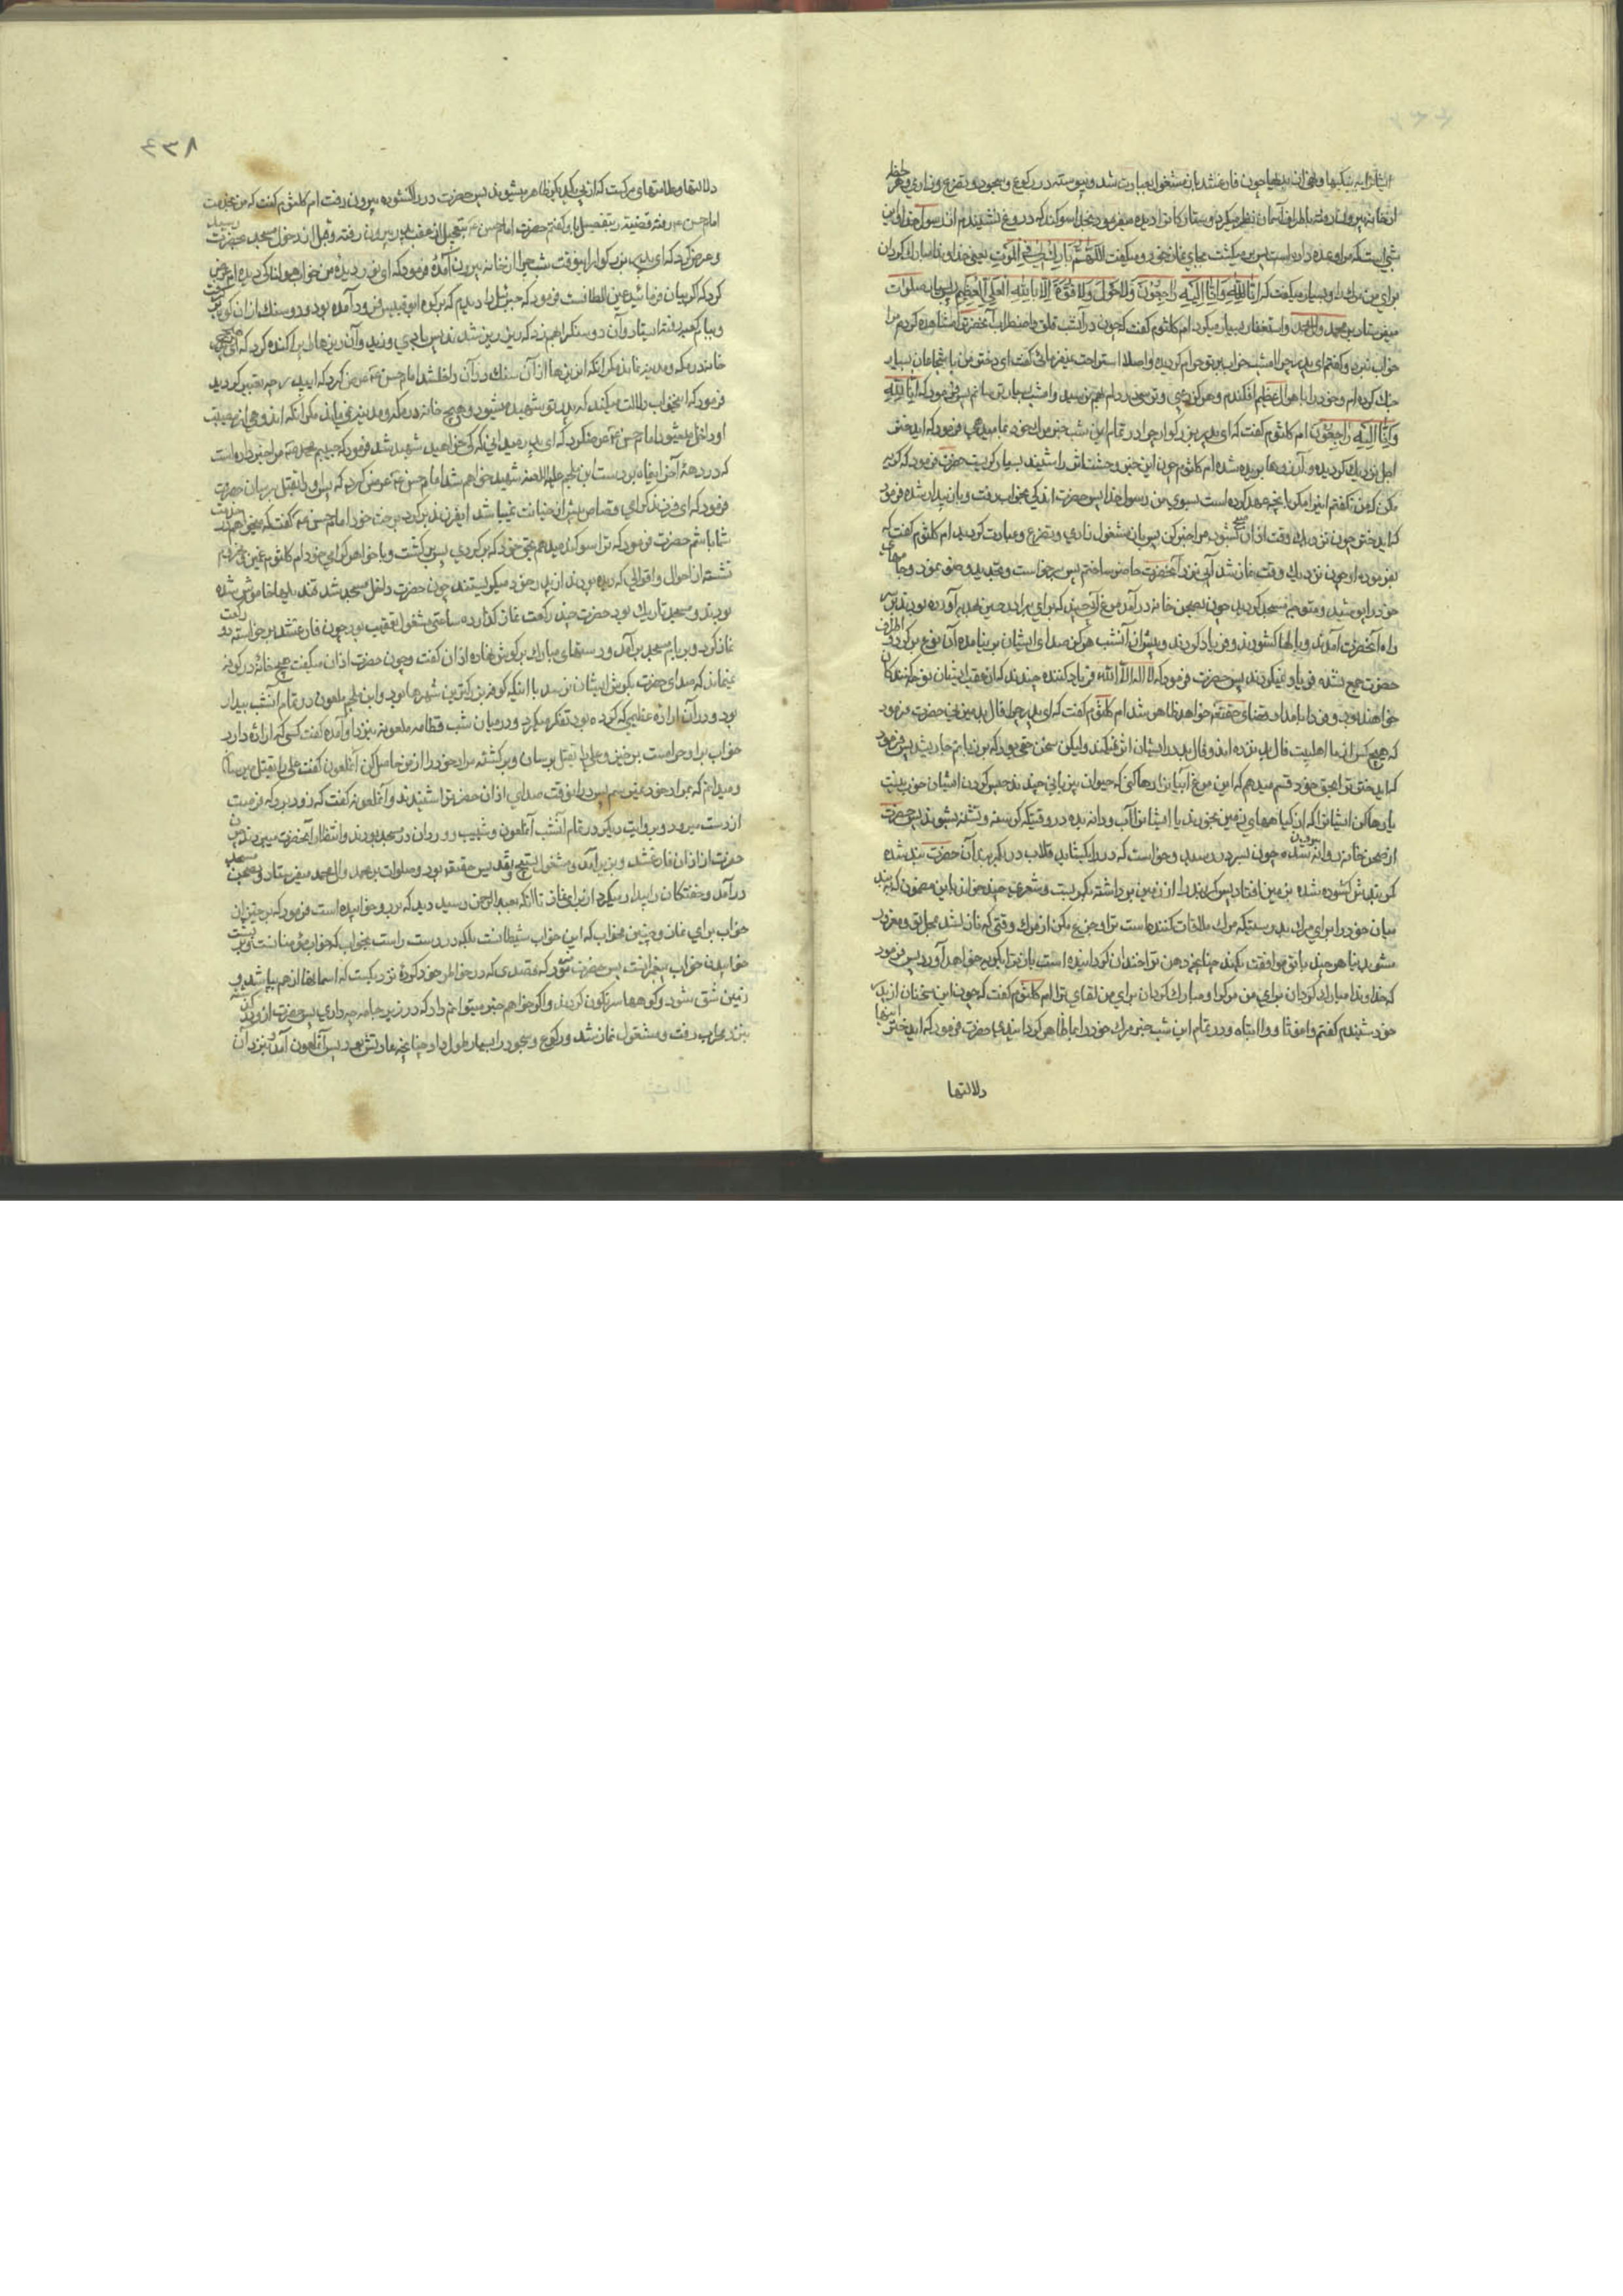 از خانه بیرون رفته باطراف آسمان نظر میکرد و ستارکانرا دیده میفرمود بخدا سوکند که دروغ نشنیدم از رسول خدا و این
شبی است که مرا وعده داده است پس بر میکشت بجای نماز خود و میکفت اَللّهُمَّ بارِک لی فِی المَوتِ یعنی خداوندا مبارک کردان
برای من مرک را و بسیار میکفت که اِنّا لِلّهِ وَاِنّا اِلَیهِ راجِعُونَ وَلاحَولَ وَلا قُوَّةَ اِلّا بِاللهِ العَلیِّ العَظیمِ و بسیار صلوات
میفرستاد بر محمد وآل محمد واستغفار بسیار میکرد ام کلثوم کفت که چون در آنشب قلق واضطراب آنحضرترا مشاهده کردم مرا
خواب نبرد وکفتم ای پدر چرا امشب خواب بر تو حرام کردیده واصلا استراحت نمیفرمائی کفت ای دختر من با شجاعان بسیار
جنک کرده ام وخود را باهوال عظیم افکندم وهرکز رعبی وترسی در دلم بهم نرسید وامشب بسیار ترسانم پس فرمود که اِنّا لِلّهِ
وَاِنّا اِلَیهِ راجِعُونَ ام کلثوم کفت که ای پدر بزرکوار چرا در تمام این شب خبر مرک خود بما میدهی فرمود که ایدختر
اجل نزدیک کردیده و آرزوها بریده شده ام کلثوم چون این خبر وحشت اثر را شنید بسیار کریست حضرت فرمود که کریه
مکن که من نکفتم این را مکر بآنچه عهد کرده است بسوی من رسول خدا پس حضرت اندکی بخواب رفت و باز بیدار شده فرمود
که ایدختر چون نزدیک وقت اذان صبح شود مرا خبر کن پس باز مشغول زاری و تضرع و عبادت کردید ام کلثوم کفت که
بفرموده او چون نزدیک وقت نماز شد آبی نزد آنحضرت حاضر ساختم پس برخواست وتجدید وضو نمود و جامهای
خود را پوشید و متوجه مسجد کردید چون بصحن خانه در آمد مرغ آبی چند که برای برادرم حسین هدیه آورده بودند بر سر
راه آنحضرت آمدند و بالها کشودند و فریاد کردند و پیش از آنشب هرکز صدای ایشان بر نیامده آن نوع بر کرد اطراف
حضرت جمع نشده فریاد نمیکردند پس حضرت فرمود که لا اله الا الله فریاد کننده چندند که از عقب ایشان نوحه کنندکان
خواهند بود و فردا بامداد قضای حقتعالی خواهد ظاهر شد ام کلثوم کفت که ای پدر چرا فال بد میزنی حضرت فرمود
که هیچ کس از ما اهلبیت فال بد نزده اند و فال بد در ایشان اثر نمیکند ولیکن سخن حقی بود که بر زبانم جاری شد پس فرمود
که ایدختر ترا بحق خود قسم میدهم که این مرغ آبیانرا رها کنی که حیوان بی زبانی چندند حبس کردن ایشان خوب نیست
یا رها کن ایشانرا که از کیاههای زمین بخورند یا ایشانرا آب و دانه بده در وقتیکه کرسنه و تشنه شوند پس حضرت
از صحن خانه روانه شده چون بدر رسید و خواست که در را بکشاید قلاب در بکمر بند آن حضرت بند شده
کمر بندش کشوده شده بر زمین افتاد پس کمر بند را از زمین برداشته بکمر بست و شعری چند خواند باین مضمون که ببند
میان خود را برای مرک بدرستیکه مرک ملاقات کننده است ترا و جزع مکن از مرک وقتی که نازل شد بمحل تو و مغرور
مشو بدنیا هر چند با تو موافقت بکند چنانچه دهر ترا خندان کردانیده است باز ترا بکریه خواهد آورد پس فرمود
که خداوندا مبارک کردان برای من مرک را و مبارک کردان برای من لقای ترا ام کلثوم کفت که چون این سخنان از پدر
خود شنیدم کفتم واغوثاه و وا ابتاه و در تمام این شب خبر مرک خود را بما ظاهر کردانیدی حضرت فرمود که ایدختر اینها
دلالتها
۸۳۴
دلالتها و علامتهای مرکست که از پی یکدیکر ظاهر میشوند پس حضرت در را کشوده بیرون رفت ام کلثوم کفت که من بخدمت
امام حسن رفته قضیه را بتفصیل باو کفتم حضرت امام حسن بتعجیل از عقب پدر بیرون رفته و قبل از دخول مسجد بحضرت رسید
و عرض کرد که ای پدر بزرکوار اینوقت شب چرا از خانه بیرون آمدهٔ فرمود که ای نور دیدهٔ من خواب هولناکی دیده ام عرض
خانه در مکه و مدینه نماند مکر آنکه این ریزها از آن سنک در آن داخل شد امام حسن عرض کرد که ای پدر چه تعبیر کردید
فرمود که اینخواب دلالت میکند که پدر تو شهید میشود و هیچ خانه در مکه و مدینه نمیماند مکر آنکه اندوهی از مصیبت
او داخل میشود امام حسن عرض کرد که ای پدر میدانی که کی خواهید شهید شد فرمود که حبیبم محمد مرا خبر داده است
که در دههٔ آخر این ماه بر دست ابن ملجم علیه اللعنه شهید خواهم شد امام حسن عرض کرد که پس او را بقتل برسان حضرت
فرمود که ای فرزند کرامی قصاص پیش از جنایت نمیباشد ایفرزند بر کرد برخت خود امام حسن کفت که میخواهم در خدمت
شما باشم حضرت فرمود که ترا سوکند میدهم بحق خود که بر کردی پس بر کشت و با خواهر کرامی خود ام کلثوم غمین و حزین
نشسته از احوال و اقوالی که دیده بودند از پدر خود میکریستند چون حضرت داخل مسجد شد قندیلها خاموش شده
بودند و مسجد تاریک بود حضرت چند رکعت نماز کذارده ساعتی مشغول تعقیب بود چون فارغ شد برخواسته دو رکعت
نماز کرد و بر بام مسجد بر آمد و دستهای مبارک بر کوش نهاده اذان کفت و چون حضرت اذان میکفت هیچ خانهٔ در کوفه
نمیماند که صدای حضرت بکوش ایشان نرسد با اینکه کوفه بزرکترین شهرها بود و ابن ملجم ملعون در تمام آنشب بیدار
بود و در آن ارادهٔ عظیمی که کرده بود تفکر میکرد و در میان شب قطامه ملعونه بنزد او آمده کفت کسی که ارادهٔ دارد
خواب بر او حرامست برخیز و علی را بقتل برسان و بر کشته مراد خود را از من حاصل کن آنملعون کفت علی را بقتل میرسانم
و میدانم که بمراد خود نمیرسم پس در اینوقت صدای اذان حضرترا شنیدند و آنملعونه کفت که زود برو که فرصت
از دست میرود و بروایت دیکر در تمام آنشب آنملعون و شبیب و وردان در مسجد بودند و انتظار آنحضرت میبردند چون
حضرت از اذان فارغ شد و بزیر آمد و مشغول تسبیح و تقدیس حقتعالی بود و صلوات بر محمد وال محمد میفرستاد و بصحن مسجد
در آمد و خفتکان را بیدار میکرد از برای نماز تا آنکه بعبدالرحمن رسید دید که برو خوابیده است فرمود که برخیز از
خواب برای نماز و چنین مخواب که این خواب شیطانست بلکه در دست راست بخواب که خواب مؤمنانست و بر پشت
خوابیدن خواب پیغمبرانست پس حضرت فرمود که قصدی که در خواطر خود کردهٔ نزدیکست که آسمانها از هم بپاشد و
زمین شق شود و کوهها سرنکون کردند و اکر خواهم خبر میتوانم داد که در زیر جامه چه داری پس حضرت از او کذشته
بنزد محراب رفت و مشغول نماز شد و رکوع و سجود را بسیار طول داد چنانچه عادتش بود پس آنملعون آمد و بنزد آن